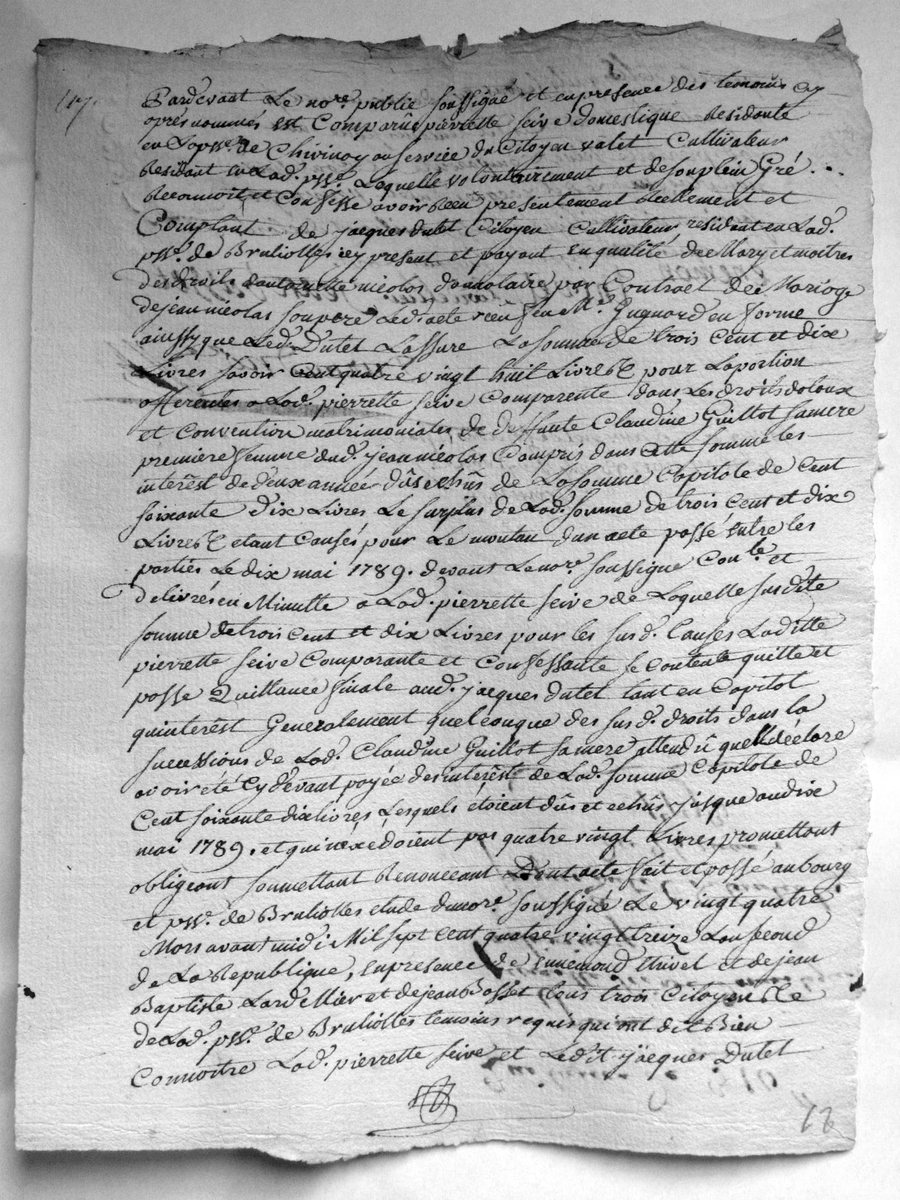 Pardevant Le nore. publie soussigné et en presence des temoins cy
apres nommés est Comparüe pierrette seive domestique Residente
en La psse. de Chivinay au servîce du Citoyen valet Cultivateur
Residant en Lad. psse. Laquelle volontairement et de son plein Gré
Reconnoit et Confesse avoir Reeu presentement Reellement et
Comptant de jacques dutel Citoyen Cultivateur resident en Lad.
psse. de Brulioles icy present et payant en qualité de Mary et maitres
des droits d'antoinette nicolas donataire par Contract de Mariage
de jean nicolas son pere Led. acte reeu feu Me. Guynard en forme
ainssy que Led. Dutel L'assure La somme de trois Cent et dix
Livres savoir Cent quatre vingt huit Livres pour La portion
afferente a Lad. pierrette seive Comparente dans Les droits dotaux
et Convention matrimoniales de deffunte Claudine Guillot sa mere
premiere femme dud. jean nicolas Compris dans Cette somme les
interest de deux année dûs et echûs de La somme Capitole de Cent
soixante dix Livres Le surplus de Lad. somme de trois Cent et dix
Livres etant Causés pour Le montan dun acte passé entre les
parties Le dix mai 1789. devant Le nore. soussigne Conle. et
delivrés en Minutte a Lad. pierrette seive de Laquelle susdite
somme de trois Cent et dix Livres pour les susd. Causes Laditte
pierrette seive Comparante et Confessante se Contente quitte et
passe Quittance finale aud. jacques dutel tant en Capitol
qu'interest Generalement quelconque des susd. droits dans la
successions de Lad. Claudine Guillot sa mere attendû quell déclare
avoir été Cy devant payée des interêts de Lad. somme Capitole de
Cent soixante dix livres Lesquels étoient dûs et echûs jusque au dix
mai 1789. et qui n'exedoient pas quatre vingt Livres promettant
obligeant soumettant Renonceant Dont acte fait et passé au bourg
et psse. de Brulioles etude du nore. soussigne Le vingt quatre
Mars avant midi Mil sept Cent quatre vingt treize L'an second
de La Republique, en presence de ennemond Trivel et de jean
Baptiste Lardellier et de jean Basset tous trois Citoyen
de Lad. psse. de Brulioles temoins requis qui ont dit Bien
Connoitre Lad. pierrette seive et Ledit jacques Dutel